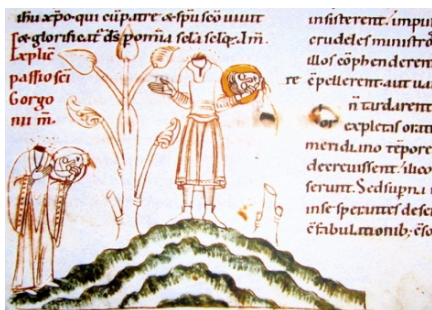 ihu xpo. qui cu patre & spu sco uiuit
& glorificat ds pomia scla sclo4. Am.
Explic
passio sci
Gorgo
nii m.
insisterent. impu
crudeles ministro
illos cophenderen
re epellerent. aut ua
n tardarent
or expletas orati
mendi. no tepore
decreuissent. ilico
serunt. Sed supni i
in se sperantes deser
cfabulationib; cso